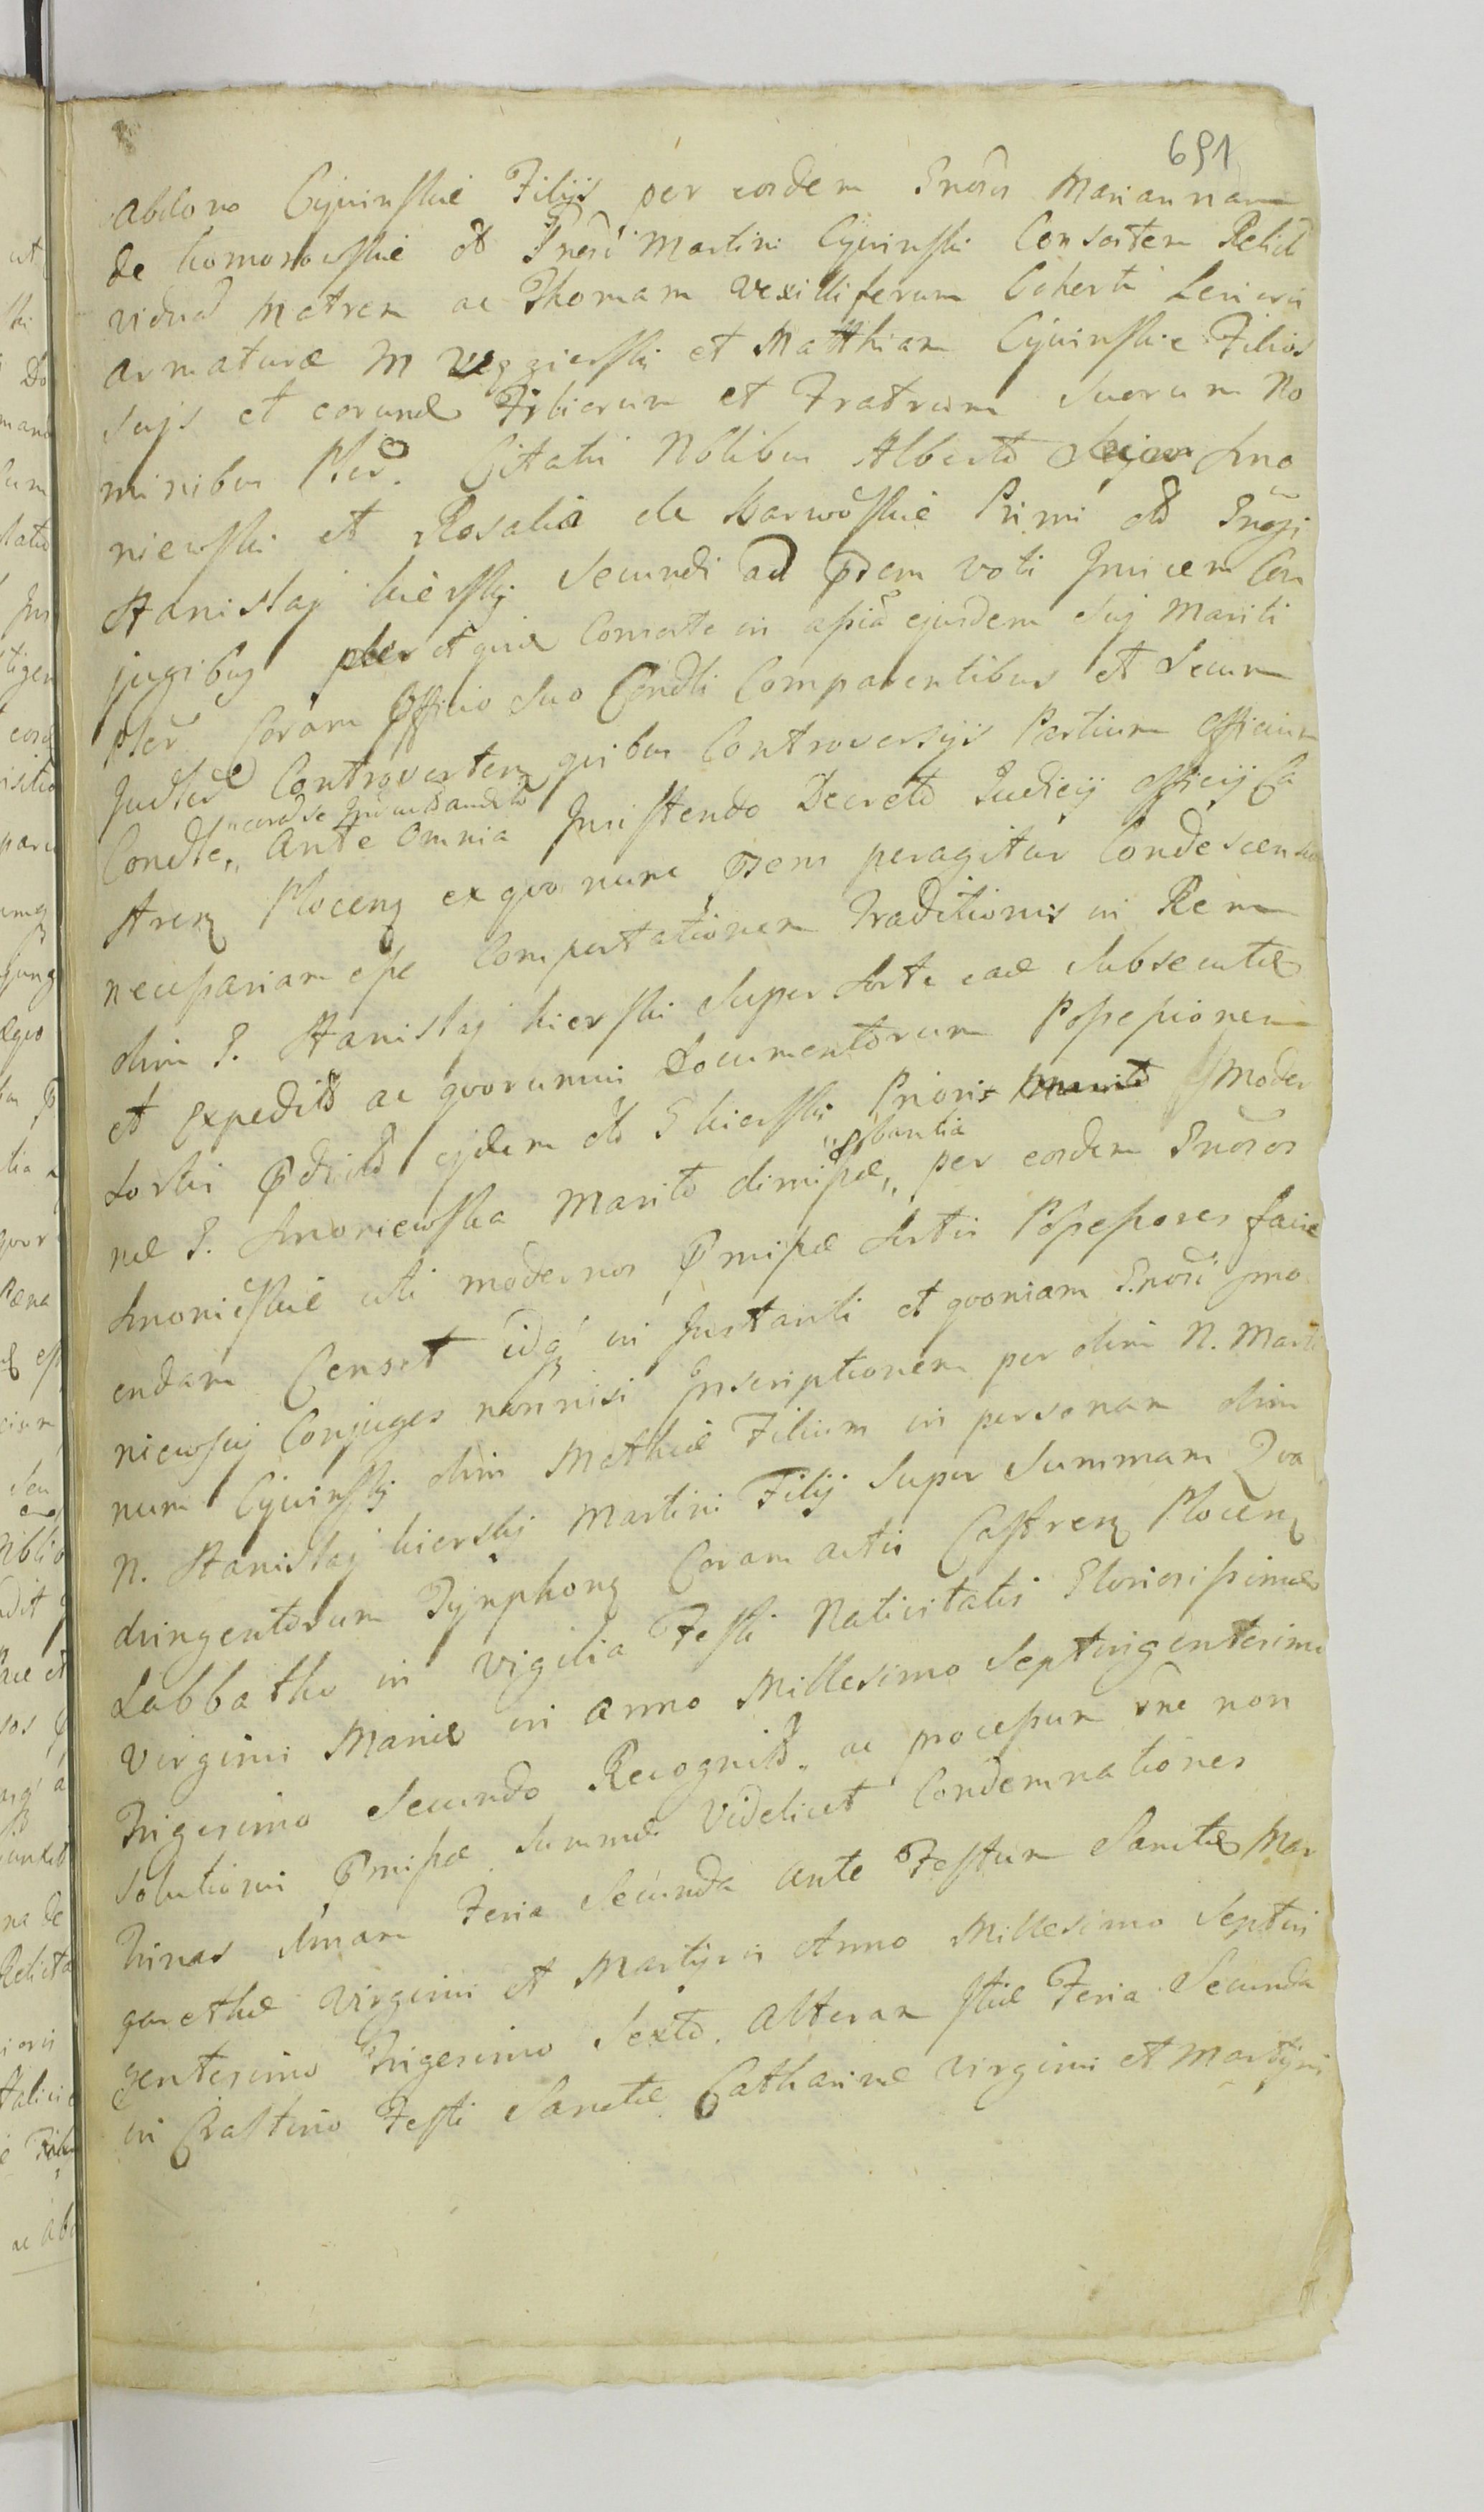 691
Abdono Cywinskie Filijs per eosdem Gnosos Mariannam
de Komorowskie olĩ Gnosi Martini Cywinski Consortem Relict
Viduã Matrem ac Thomam Vexilliferum Coherti Levioris
armaturæ M et Matthiam Cywinskie Filios
suijs et eorund Filiorum et Fratrum suorum No
minibus Pler. Citatis Nblibus Alberto Smo
niewski et Rosalia de Karwoskie Primi olĩ Gnosi
Stanislaj Kierskj Secundi ad pñtem voti Invicem Con
jugibus pler et quid Consorte in assia ejusdem suj Mariti
pler Coram Officio suo Condli Comparentibus et Secum
Judler Controverten quibus Controversijs Partium Officium
Condle, Ante Omnia Insistendo Decreto Judicij Officij Ca
strens Plocens ex quo nunc pñtens peragitur Condescensio
necessariam esse Comportationem Traditionis in Rem
olim G. Stanislaj Kierski Super Sorte ead Subsecutæ
et Expedit ac quorumvis Documentorum Possessionem
Sortis ejdem olĩ G Kierski Prioris Moder
næ G. Smoniewska Marito dimissæ, per eosdem Gnosos
Smonieskie uti modernos pmissæ Sortis Possessores faci
endam Censet idq in Instanti et quoniam Gnosi Smo
niewscij Conjuges nonnisi Inscriptionem per olim N. Marti
num Cywinskj olim Mathiæ Filium in personam olim
N. Stanislaj Kierskj Martini Filij Super Summam Qua
dringentorum Tynphons Coram actis Castrens Plocens
Sabbatho in Vigilia Festi Nativitatis Gloriosissimæ
Virginis Mariæ in Anno Millesimo Septingentesimo
Trigesimo Secundo Recognit. ac processum rne non
Solutionis pmissæ Summæ Videlicet Condemnationes
Trinas Imam Feria Secunda ante Festum Sanctæ Mar
garethæ Virginis et Martyris Anno Millesimo Septin
gentesimo Trigesimo Sexto. Alteram Feria Secunda
in Crastino Festi Sanctæ Catharinæ Virginis et Martyris